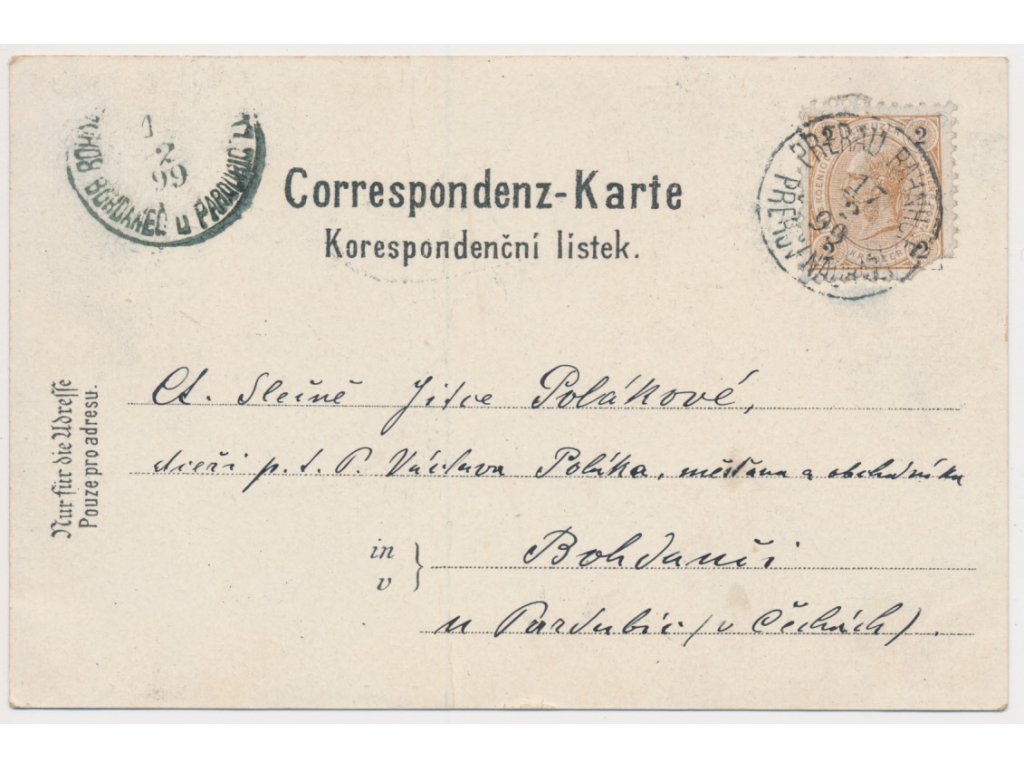 BOHDANEČ U PARDUBIC
1
2
99
Correspondenz-Karte
Korespondenční lístek.
PRERAU BAHNHOF
PŘEROV NÁDRAŽÍ
99
2
2
Nur für die Adresse
Pouze pro adresu.
Ct. Slečně Jitce Polákové,
dceři p. t. P. Václava Poláka, měšťana a obchodníka
in
v } Bohdanči
u Pardubic (v Čechách).